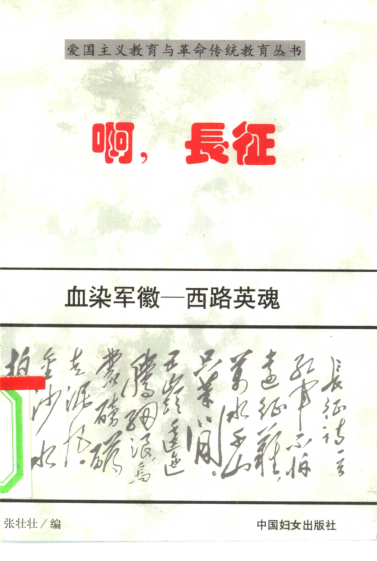 爱国主义教育与革命传统教育丛书
啊，長征
血染军徽—西路英魂
长征诗一首
红軍不怕
遠征難
萬水千山
只等閒
五嶺逶迤
騰細浪烏
蒙磅礴
走泥丸
金沙水
拍
张壮壮/编
中国妇女出版社